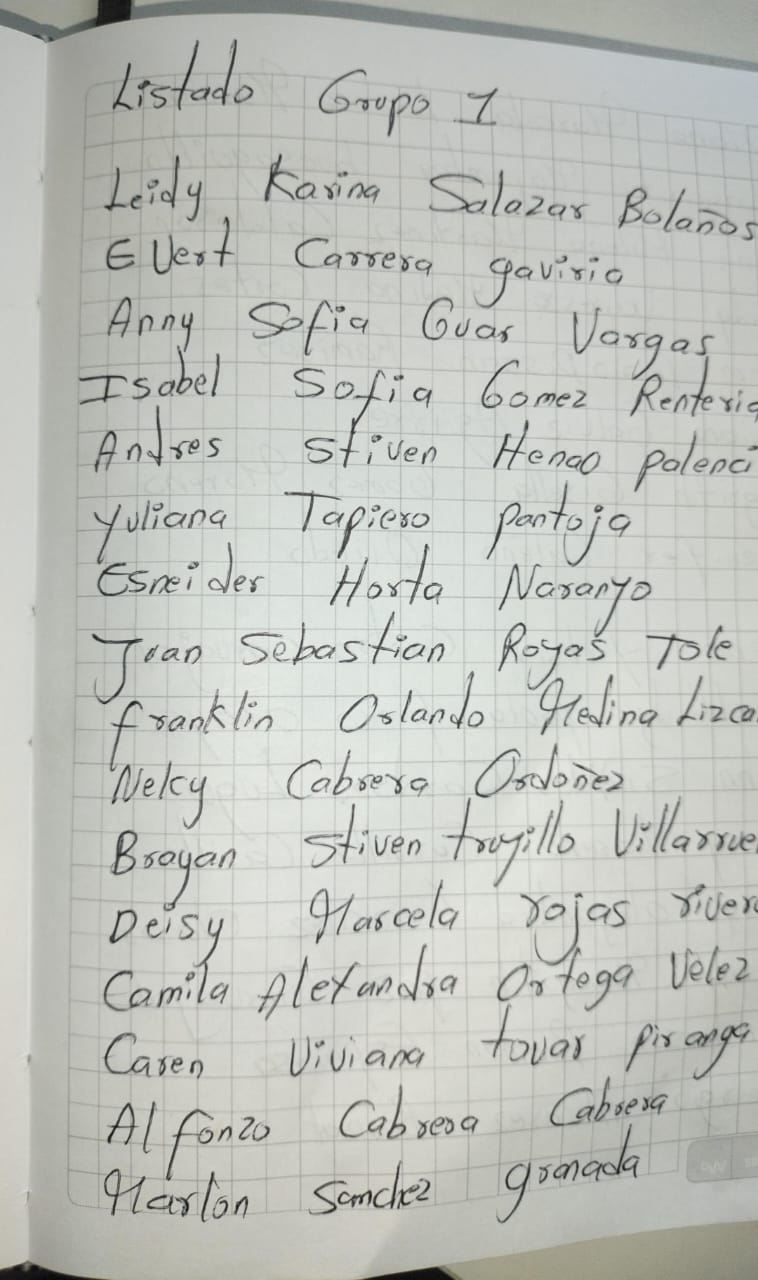 Listado Grupo 1
Leidy Karina Salazar Bolaños
EVert Carrera gaviria
Anny Sofia Guar Vargas
Isabel Sofia Gomez Renteria
Andres Stiven Henao palenci
Yuliana Tapiero pantoja
Esneider Horta Naranyo
Juan Sebastian Royas Tole
franklin Orlando Medina Lizca
Nelcy Cabrera Ordoñez
Brayan Stiven truyillo Villarrue
Deisy Marcela rojas river
Camila Alexandra Ortega Velez
Caren Viviana tovar piranga
Alfonzo Cabrera Cabrera
Marlon Sanchez granada